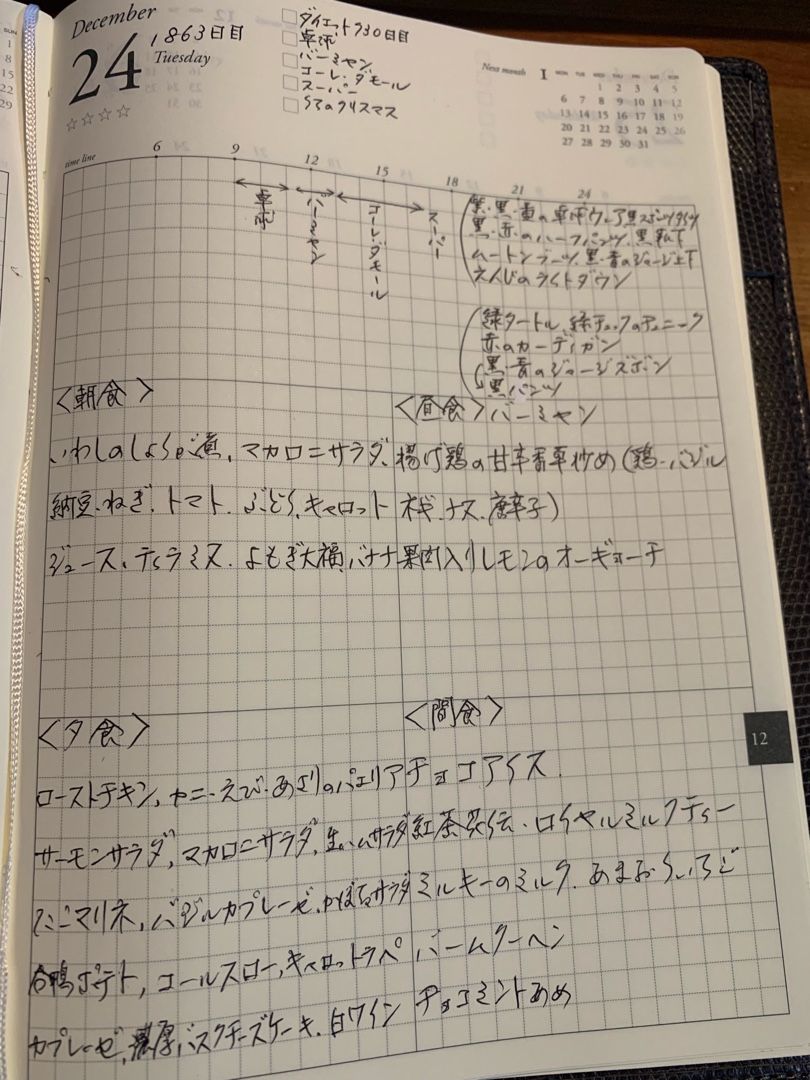 December
24
1863日目
Tuesday
☆☆☆☆
ダイエット930日目
卓球
バーミヤン
コーレ・ダモール
スーパー
のクリスマス
Next month 1 MON TUE WED THU FRI SAT SUN
1 2 3 4 5
6 7 8 9 10 11 12
13 14 15 16 17 18 19
20 21 22 23 24 25 26
27 28 29 30 31
time line 6 9 12 15 18 21 24
卓球
バーミヤン
コーレ・ダモール
スーパー
紫・黒・黄の卓球ウェア黒スポーツタイツ
黒・赤のハーフパンツ、黒靴下
ムートンブーツ、黒・青のジャージ上下
えんじのライトダウン
緑タートル、緑チェックのチュニック
赤のカーディガン
黒・青のジャージズボン
黒パンツ
<朝食>
いわしのしょうが煮、マカロニサラダ、
納豆、ねぎ、トマト、ぶどう、キャロット
ジュース、ティラミス、よもぎ大福、バナナ
<昼食>バーミヤン
揚げ鶏の甘辛香草炒め(鶏・バジル
ナス、唐辛子)
果肉入りレモンのオーギョーチ
<夕食>
ローストチキン、カニ・えび・あさりのパエリア
サーモンサラダ、マカロニサラダ、生ハムサラダ
マリネ、バジルカプレーゼ、かぼちゃサラダ
合鴨ポテト、コールスロー、キャロットラペ
カプレーゼ、濃厚バスクチーズケーキ、白ワイン
<間食>
チョコアイス、
紅茶花伝・ロイヤルミルクティー
ミルキーのミルク、あまおういちご
バームクーヘン
チョコミントあめ
12